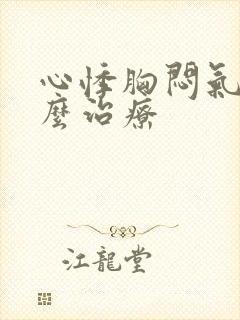 心悸胸悶氣
麼治療
江龍堂